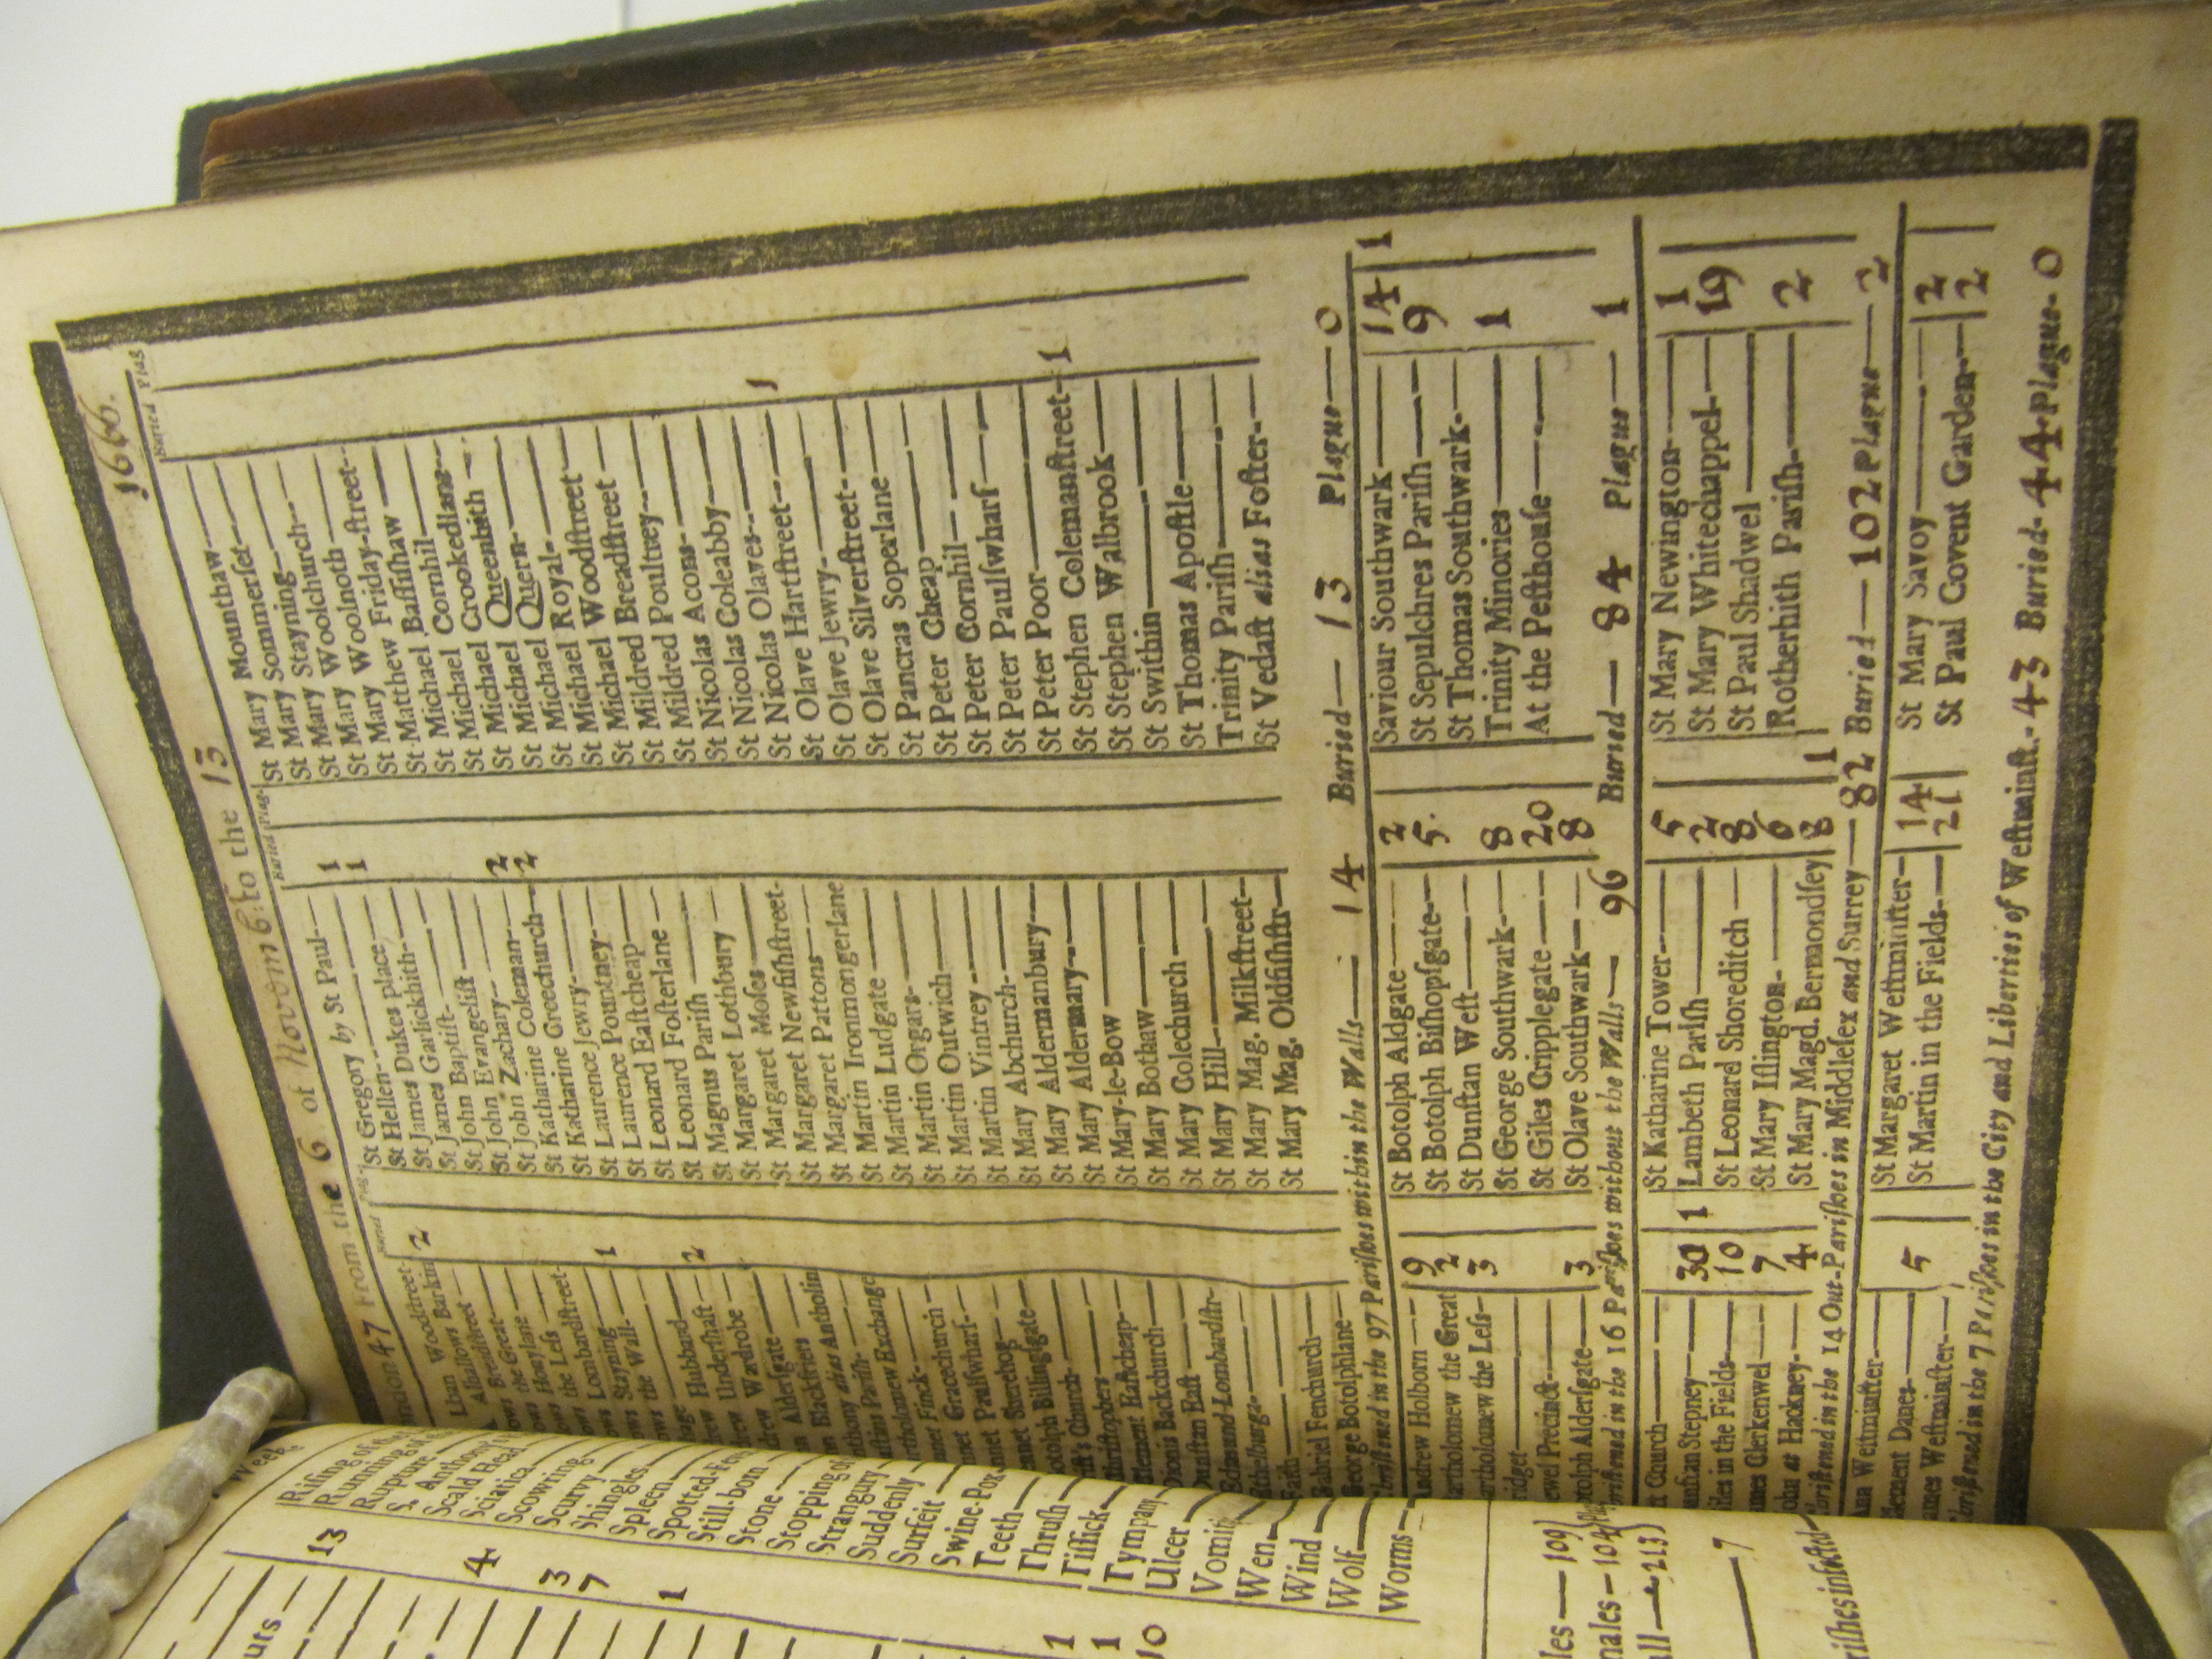 ondon 47 From the 6 of Novemb: to the 13 1666.
Buried Plag.
Buried Plag.
Buried Plag
Woodstreet-
Lban Barkin 2
Alhallows
Breadstreet
ows the Great
Honylane
ows the Less
ows Lombardstreet-
ows Stayning 1
ows the Wall.
age Hubbard
rew Undershaft 2
drew Wardrobe
Aldersgate
n Blackfriers
thony alias Antholin
stins Parish-
rtholomew Exchange
nnet Finck-
nnet Gracechurch-
nnet Paulswharf-
ennet Sherehog
otolph Billingsgate
Church
hristophers
lement Eastcheap
Dionis Backchurch
Dunstan East
Edmund Lombardstr-
Ethelburga
Faith
Gabriel Fenchurch
George Botolphlane
St Gregory by St Paul 1
St Hellen 1
St James Dukes Place
St James Garlickhith
St John Baptist
St John Evangelist
St John Zachary 2
St Katharine Coleman 2
St Katharine Creechurch
St Laurence Jewry
St Laurence Pountney
St Leonard Eastcheap
St Leonard Fosterlane
St Magnus Parish
St Margaret Lothbury
St Margaret Moses
St Margaret Newfishstreet-
St Margaret Pattons
St Martin Ironmongerlane
St Martin Ludgate
St Martin Orgars
St Martin Outwich
St Martin Vintrey
St Mary Abchurch
St Mary Aldermanbury
St Mary Aldermary
St Mary-le-Bow
St Mary Bothaw
St Mary Colechurch
St Mary Hill
St Mary Mag. Milkstreet
St Mary Mag. Oldfishstr
St Mary Mounthaw
St Mary Sommerset
St Mary Stayning
St Mary Woolchurch
St Mary Woolnoth
St Mary Friday-street
St Matthew Bassishaw
St Michael Cornhil
St Michael Crookedlane
St Michael Queenhith
St Michael Quern
St Michael Royal
St Michael Woodstreet
St Mildred Breadstreet
St Mildred Poultrey
St Nicolas Acons
St Nicolas Coleabby
St Nicolas Olaves 1
St Olave Hartstreet
St Olave Jewry
St Olave Silverstreet
St Pancras Soperlane
St Peter Cheap
St Peter Cornhil
St Peter Paulswharf
St Peter Poor
St Stephen Colemanstreet 1
St Stephen Walbrook
St Swithin
St Thomas Apostle
Trinity Parish
St Vedast alias Foster
Christned in the 97 Parishes within the Walls 14 Buried 13 Plague 0
Andrew Holborn 9
artholomew the Great 2
artholomew the Less 3
ridget
ewel Precinct
otolph Aldersgate 3
St Botolph Aldgate 2
St Botolph Bishopsgate 5
St Dunstan West
St George Southwark 8
St Giles Cripplegate 20
St Olave Southwark 8
Saviour Southwark 14 1
St Sepulchres Parish 9
St Thomas Southwark
Trinity Minories 1
At the Pesthouse
hristned in the 16 Parishes without the Walls 96 Buried 84 Plague 1
t Church
unstan Stepney 30 1
iles in the Fields 10
ames Clerkenwel 7
ohn at Hackney 4
St Katharine Tower 5
Lambeth Parish 2
St Leonard Shoreditch 8
St Mary Islington 6
St Mary Magd. Bermondsey 8 1
St Mary Newington 1
St Mary Whitechappel 19
St Paul Shadwel
Rotherhith Parish 2
hristned in the 14 Out-Parishes in Middlesex and Surrey 82 Buried 102 Plague 2
Ann Westminster
lement Danes 5
ames Westminster
St Margaret Westminster 14
St Martin in the Fields 21
St Mary Savoy 2
St Paul Covent Garden 2
Christned in the 7 Parishes in the City and Liberties of Westminst. 43 Buried 44 Plague 0
Week
uts
13
4
3
7
1
1
1
10
Rising of the
Running of
Rupture
S. Anthony
Scald Head
Sciatica
Scowring
Scurvy
Shingles
Spleen
Spotted-Fe
Still-born
Stone
Stopping of
Strangury
Suddenly
Surfeit
Swine-Pox
Teeth
Thrush
Tissick
Tympany
Ulcer
Vomiti
Wen
Wind
Wolf
Worms
les 109
nales 104
all 213
7
rishes infected